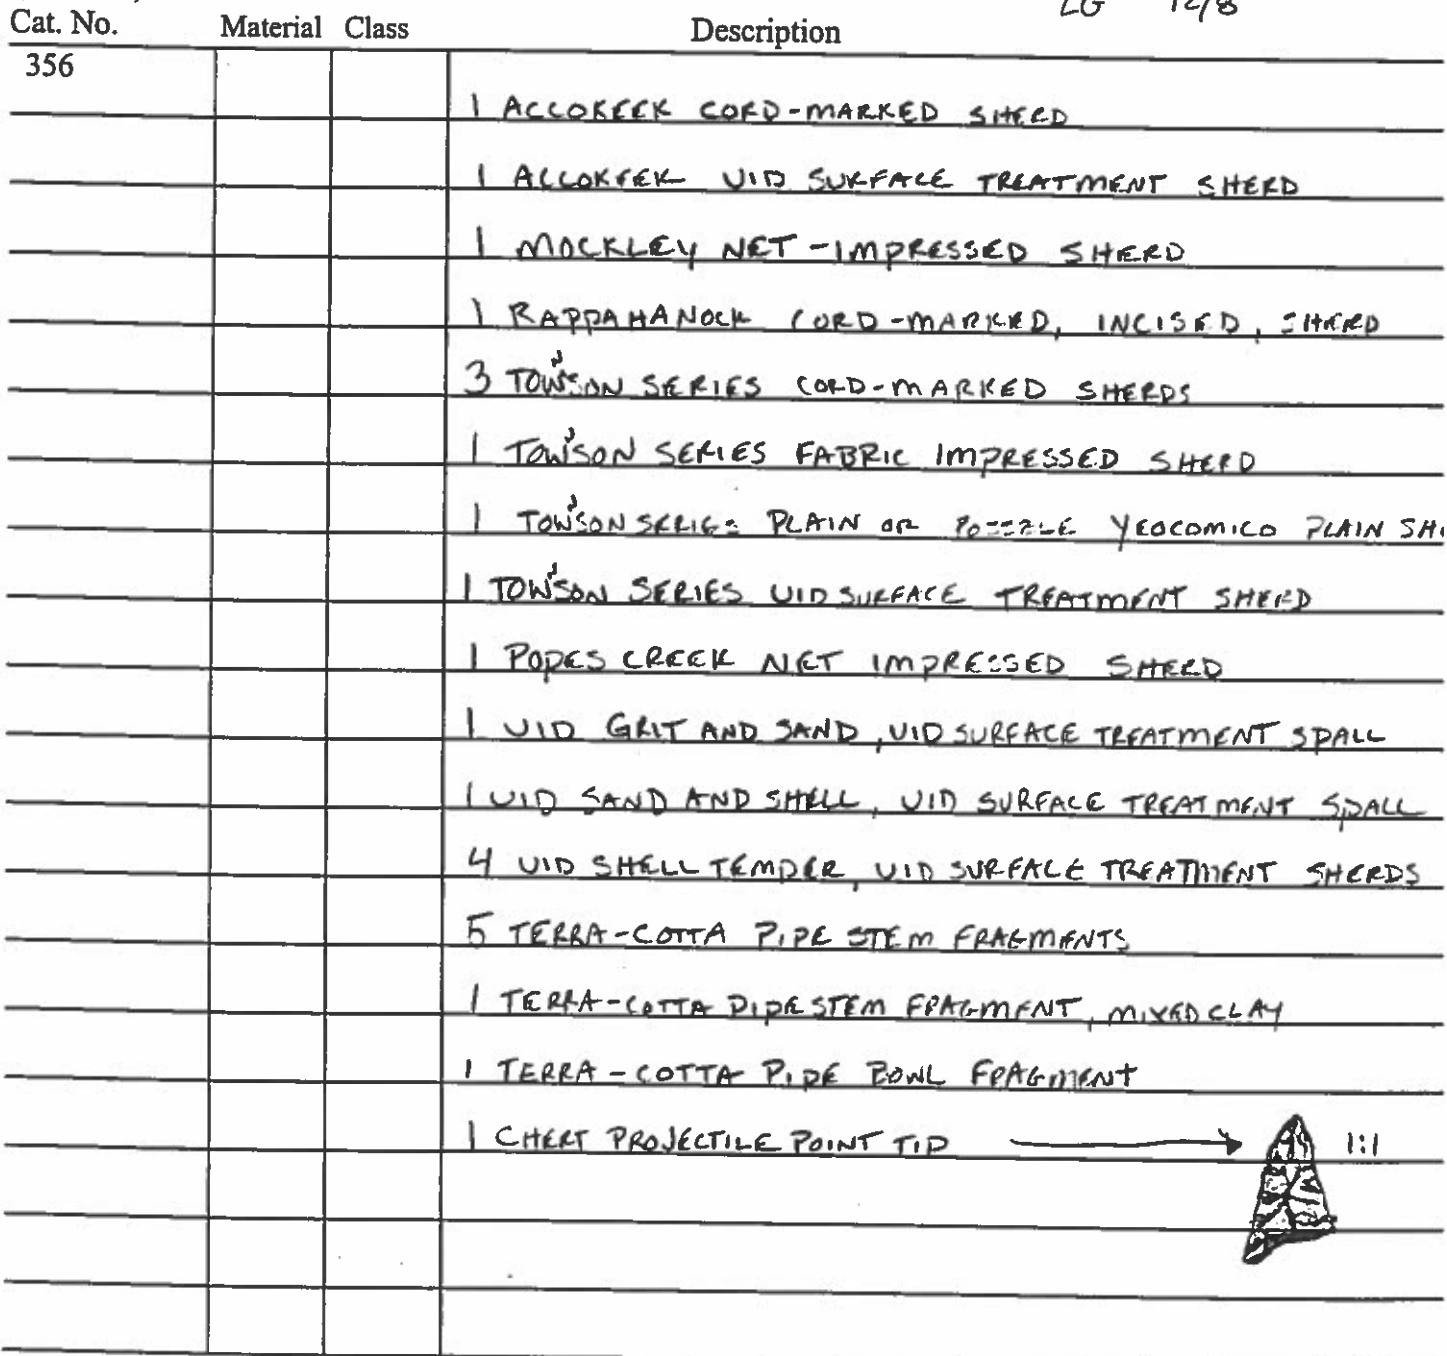 LG 12/8
Cat. No. Material Class Description
356
1 ACCOKEEK CORD-MARKED SHERD
1 ACCOKEEK UID SURFACE TREATMENT SHERD
1 MOCKLEY NET-IMPRESSED SHERD
1 RAPPAHANOCK CORD-MARKED, INCISED, SHERD
3 TOWNSON SERIES CORD-MARKED SHERDS
1 TOWNSON SERIES FABRIC IMPRESSED SHERD
1 TOWNSON SERIES PLAIN OR POSSIBLE YEOCOMICO PLAIN
1 TOWNSON SERIES UID SURFACE TREATMENT SHERD
1 POPES CREEK NET IMPRESSED SHERD
1 UID GRIT AND SAND, UID SURFACE TREATMENT SPALL
1 UID SAND AND SHELL, UID SURFACE TREATMENT SPALL
4 UID SHELL TEMPER, UID SURFACE TREATMENT SHERDS
5 TERRA-COTTA PIPE STEM FRAGMENTS
1 TERRA-COTTA PIPE STEM FRAGMENT, MIXED CLAY
1 TERRA-COTTA PIPE BOWL FRAGMENT
1 CHERT PROJECTILE POINT TIP 1:1